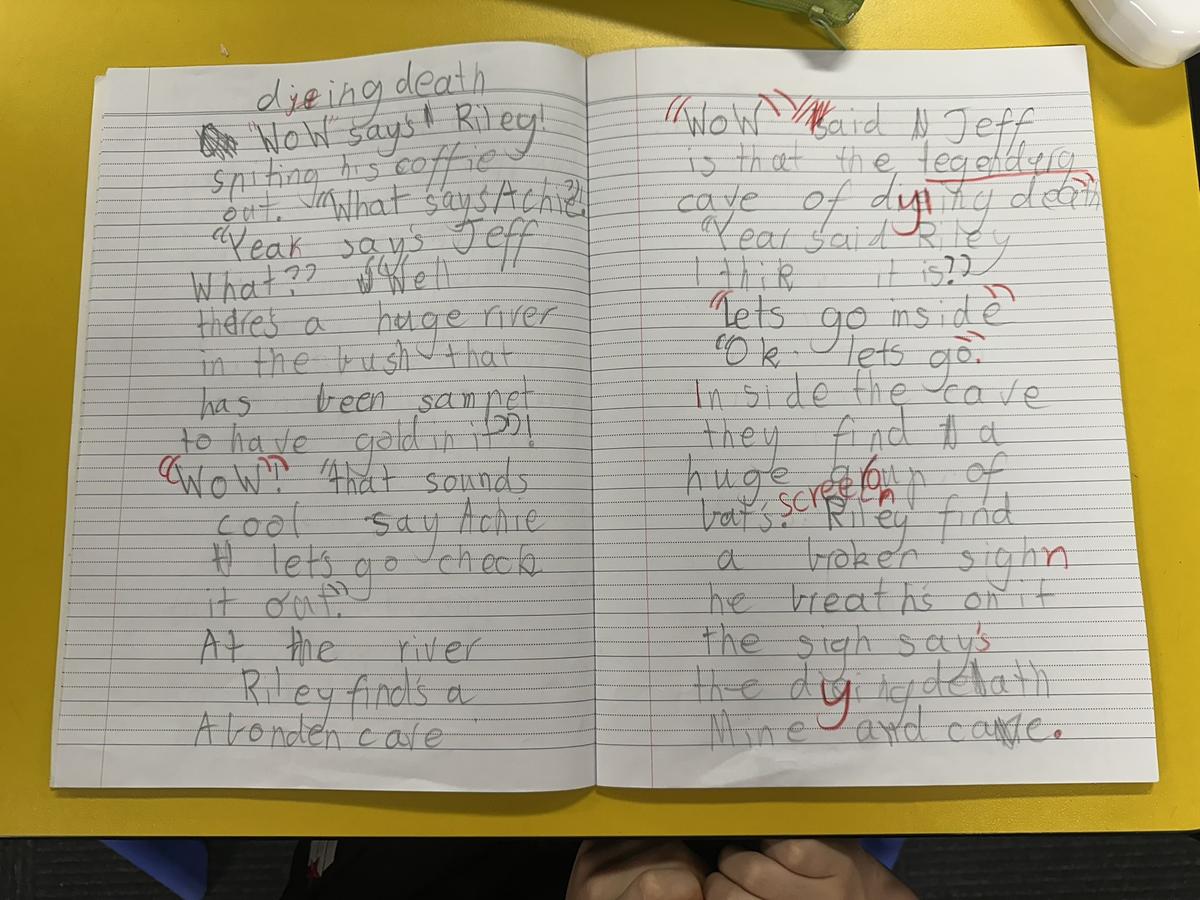 dyeing death
"WoW" says Riley!
spiting his coffie
out. "What says Achie?"
"Yeah says Jeff
What?? "Well
there's a huge river
in the bush that
has been sampet
to have gold in it"!
"WoW"! "that sounds
cool say Achie
lets go check
it out."
At the river
Riley find's a
Abonden cave
"WoW" said Jeff
is that the legendary
cave of dying death"
"Year said Riley
I thik it is??
"lets go inside"
"Ok. lets go."
Inside the cave
they find a
huge group of
bats. screech Riley find
a broken sighn
he breath's on it
the sigh say's
the dying death
Mine and cave.